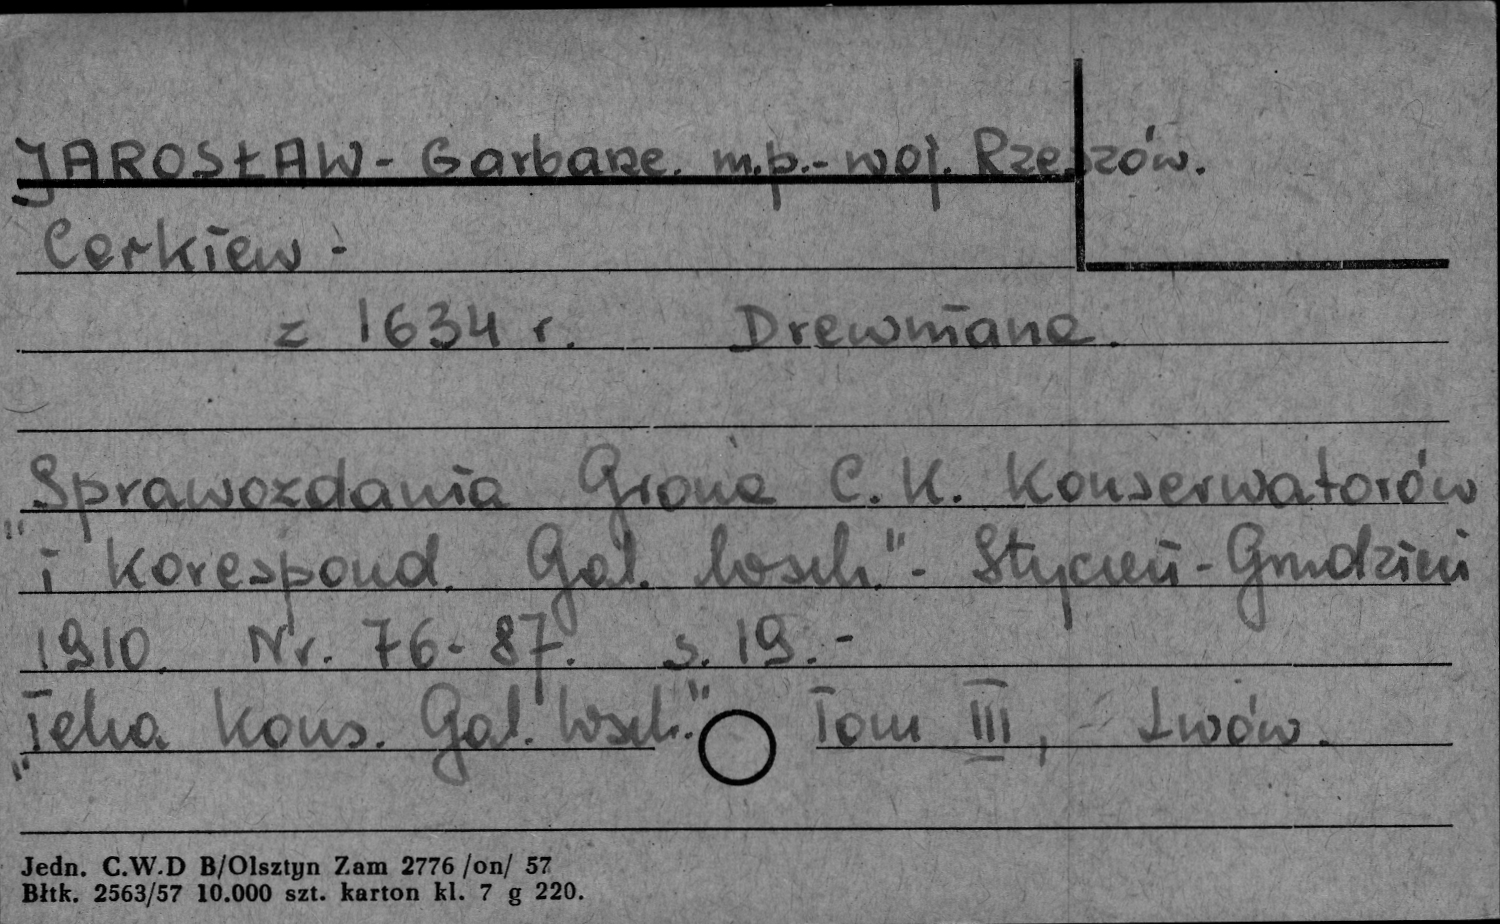 JAROSŁAW - Garbarze. m.p.- woj. Rzeszów.
Cerkiew -
z 1634 r. Drewniana.
Sprawozdania Grona C. K. Konserwatorów
„i korespond. Gal. Wsch." - Styczeń - Grudzień
1910. Nr. 76-87. s. 19.-
„Teka Kons. Gal. Wsch." Tom III, Lwów.
Jedn. C.W.D B/Olsztyn Zam 2776 /on/ 57
Błtk. 2563/57 10.000 szt. karton kl. 7 g 220.